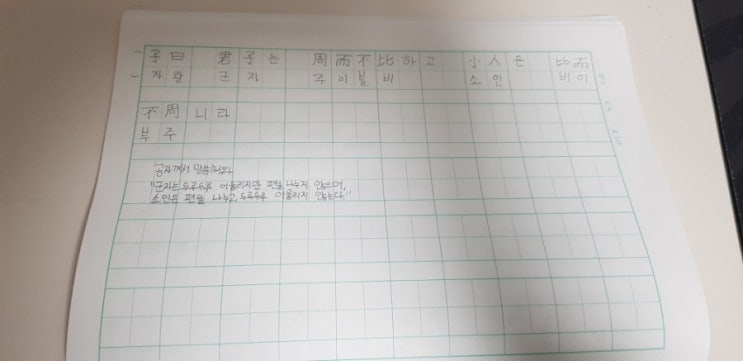 子曰 君子는 周而不比하고 小人은 比而
자왈 군자 주이불비 소인 비이
不周 니라
부주
공자께서 말씀하셨다.
"군자는 두루두루 어울리지만 편을 나누지 않으며,
소인은 편을 나누고, 두루두루 어울리지 않는다."